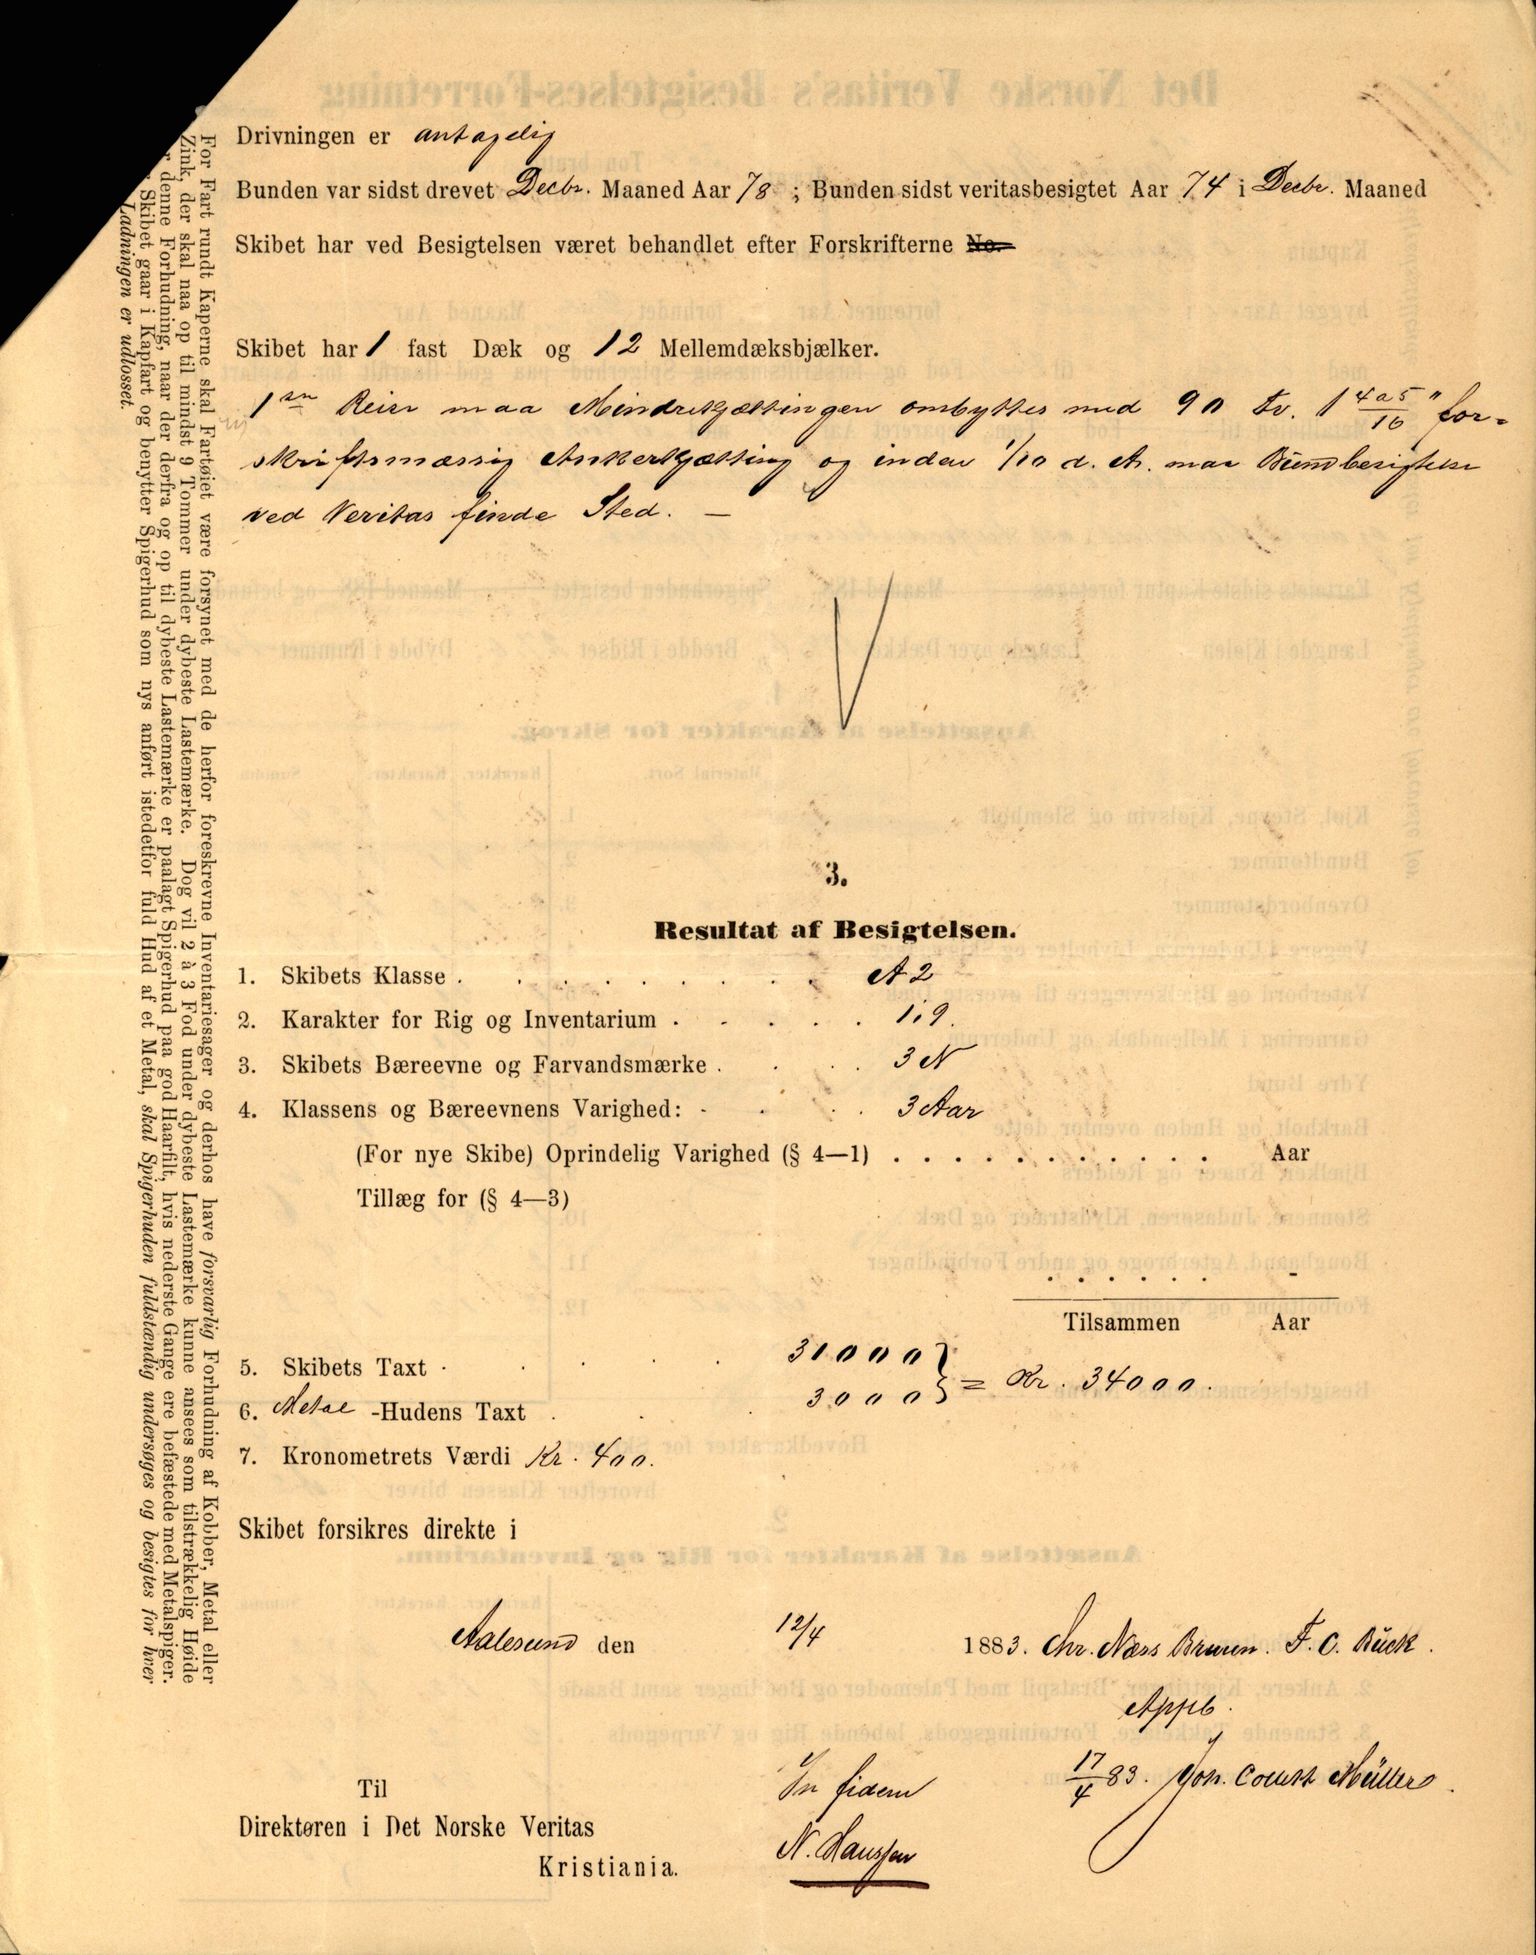 Drivningen er antagelig
Bunden var sidst drevet Decbr. Maaned Aar 78 ; Bunden sidst veritasbesigtet Aar 74 i Decbr. Maaned
Skibet har ved Besigtelsen været behandlet efter Forskrifterne No.
Skibet har 1 fast Dæk og 12 Mellemdæksbjælker.
1ste Reise maa Mindrekjættingen ombyttes med 90 Fv. 1 4 a 5/16 " for-
skriftsmæssig Ankerkjætting og inden 1/10 d. A. maa Bundbesigtelse
ved Veritas finde Sted. —
3.
Resultat af Besigtelsen.
1. Skibets Klasse . . . . . . . . . A 2
2. Karakter for Rig og Inventarium . . . . . 1.9.
3. Skibets Bæreevne og Farvandsmærke . . . . 3 N
4. Klassens og Bæreevnens Varighed: . . . . 3 Aar
(For nye Skibe) Oprindelig Varighed (§ 4—1) . . . . . . . . . . . Aar
Tillæg for (§ 4—3)
. . . . . . -
Tilsammen Aar
5. Skibets Taxt . . . . . 31000
6. Metal -Hudens Taxt . . . 3000 } = Kr. 34000.
7. Kronometrets Værdi Kr. 400.
Skibet forsikres direkte i
Aalesund den 12/4 1883. Chr. Næss Bruun. F. C. Bück.
Appb.
17/4 83. Joh. Collett Müller.
Til
Direktøren i Det Norske Veritas
Kristiania.
In fidem
N. Hanssen
For Fart rundt Kaperne skal Fartøiet være forsynet med de herfor foreskrevne Inventariesager og derhos have forsvarlig Forhudning af Kobber, Metal eller
Zink, der skal naa op til mindst 9 Tommer under dybeste Lastemærke. Dog vil 2 à 3 Fod under dybeste Lastemærke kunne ansees som tilstrækkelig Høide
denne Forhudning, naar der derfra og op til dybeste Lastemærke er paalagt Spigerhud paa god Haarfilt, hvis nederste Gange ere befæstede med Metalspiger.
Skibet gaar i Kapfart og benytter Spigerhud som nys anført istedetfor fuld Hud af et Metal, skal Spigerhuden fuldstændig undersøges og besigtes for hver
Ladningen er udlosset.